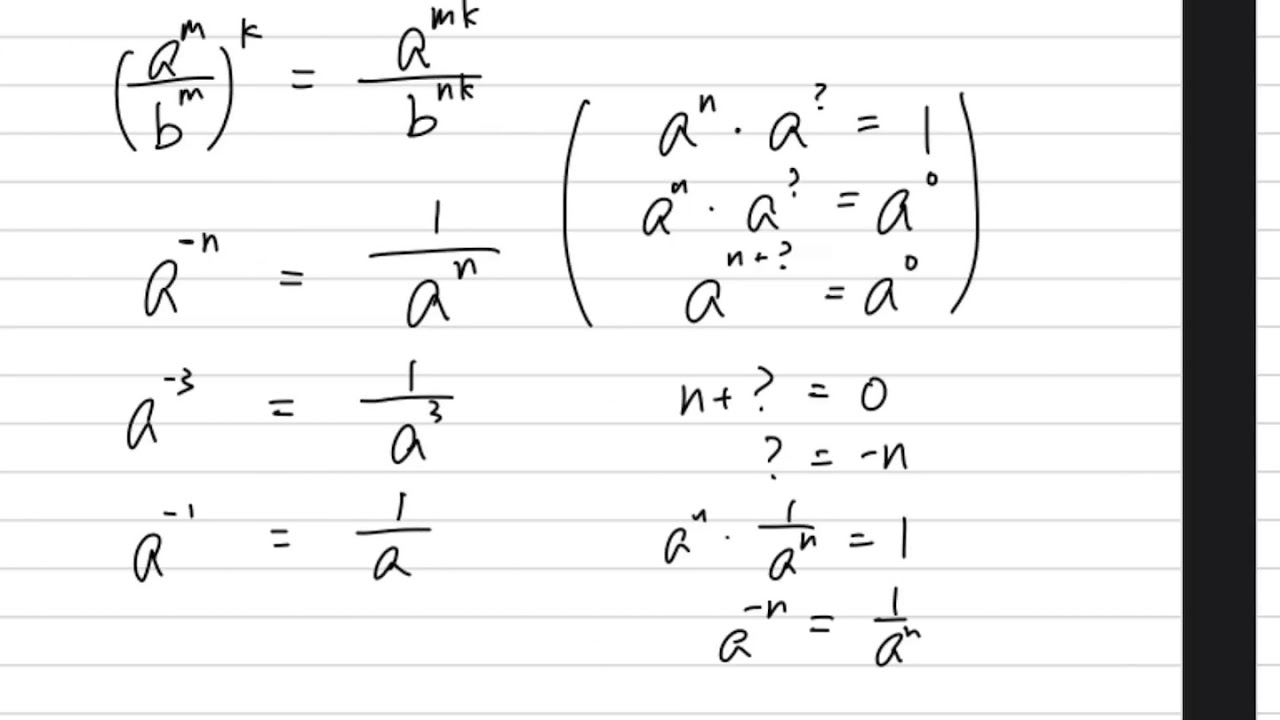 (a^m / b^m)^k = a^{mk} / b^{nk}
a^{-n} = 1 / a^n
( a^n · a^? = 1
a^n · a^? = a^0
a^{n+?} = a^0 )
a^{-3} = 1 / a^3
a^{-1} = 1 / a
n + ? = 0
? = -n
a^n · 1 / a^n = 1
a^{-n} = 1 / a^n